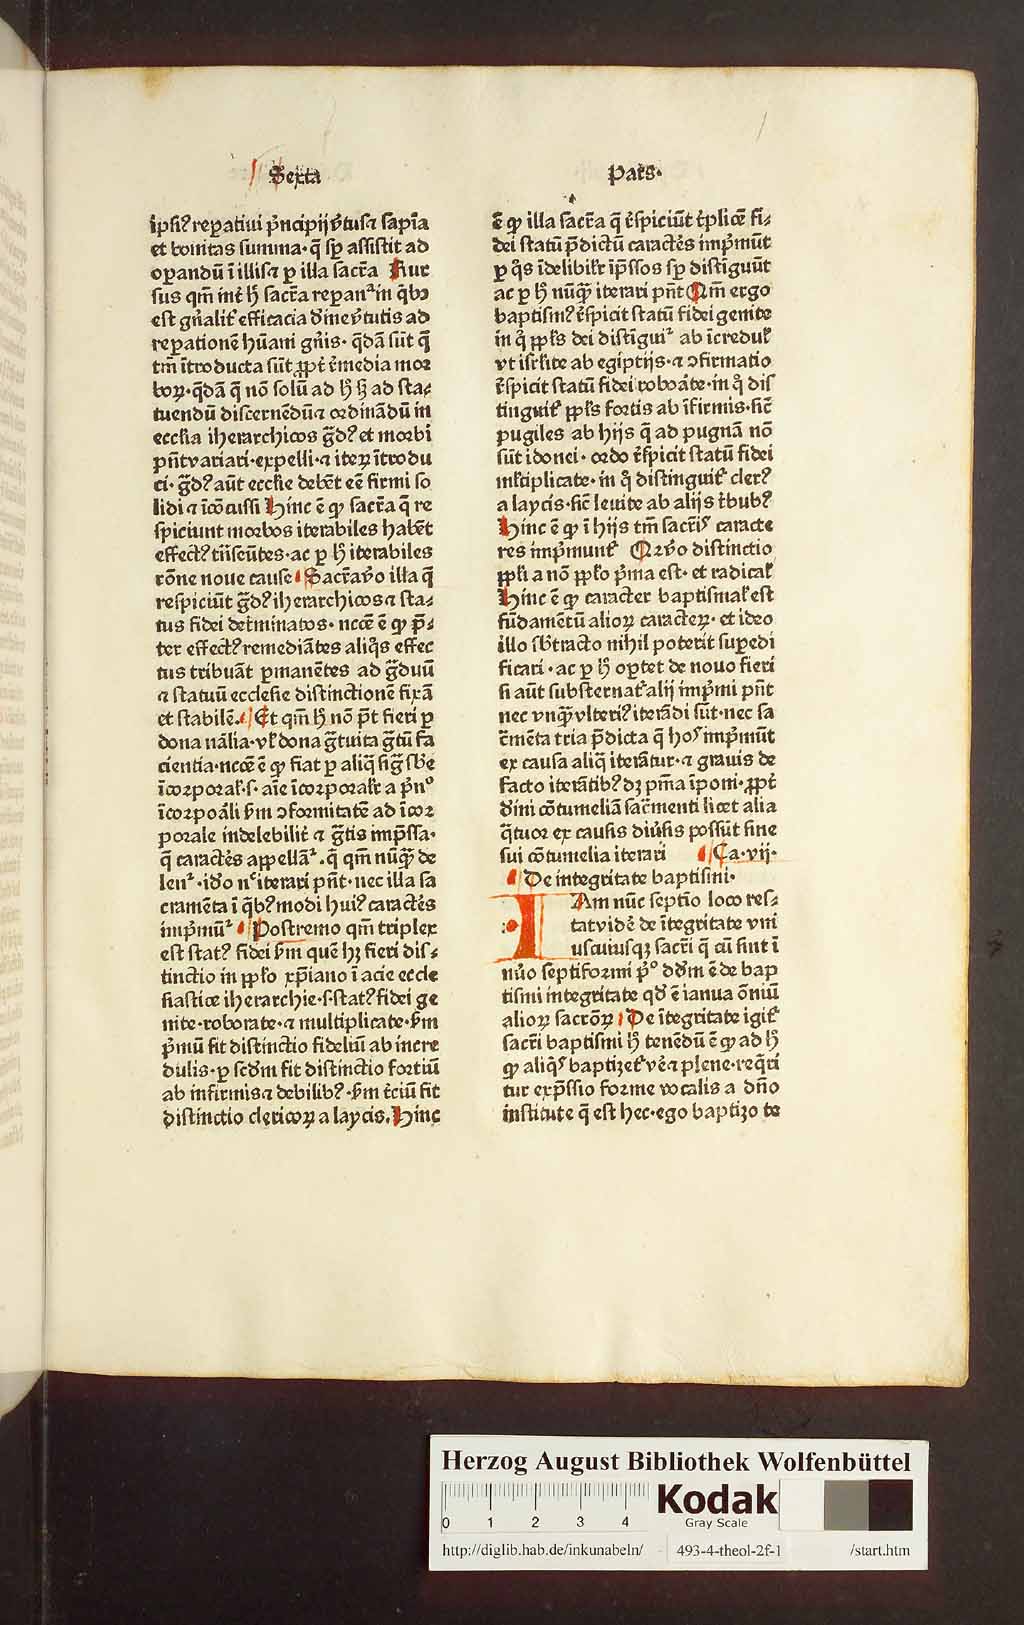 Sexta
Pars.
ipsiꝰ reꝑatiui pͥncipij v̓tus ⁊ sapīa
et bonitas summa· q̄ sꝑ assistit ad
oꝑandū ī illis ⁊ ꝑ illa sacr̄a Rur
sus qm̄ int̓ hͦ sacr̄a reꝑanᷓ in q̄bꝫ
est gn̓alit̓ efficacia dīne v̓tutis ad
reꝑationē hūani gn̓is· q̄dā sūt q̄
tm̄ ītroducta sūt ꝓpt̓ r̓media mor
boꝝ· q̄dā q̄ nō solū ad hͦ hꝫ ad sta⸗
tuendū discernēdū ⁊ ordinādū in
eccľia iherarchicos g̃dꝰ et morbi
pn̄t variari· expelli· ⁊ iteꝝ ītrodu
ci· g̃dꝰ aūt eccľie debēt eē firmi so
lidi ⁊ īcōcussi Hinc ē ꝙ sacr̄a q̄ re
spiciunt morbos iterabiles habēt
effectꝰ trāseūtes· ac ꝑ hͦ iterabiles
rōne noue cause Sacr̄a v̓o illa q̄
respiciūt g̃dꝰ iherarchicos ⁊ sta⸗
tus fidei det̓minatos· nccē ē ꝙ p̄⸗
ter effectꝰ remediātes aliqͦs effec
tus tribuāt ꝑmanētes ad g̃duū
⁊ statuū ecclesie distinctionē fixā
et stabilē. Et qm̄ hͦ nō p̄t fieri ꝑ
dona nāľia· vľ dona g̃tuita g̃tū fa
cientia· nccē ē ꝙ fiat ꝑ aliq̄ sig̃ sb̓e
īcorporaľ· s· aīe īcorꝑoralr̓ a pͥnͦ
īcorpoāli ẜm ꝯformitatē ad īcor
ꝑorale indelebilit̓ ⁊ g̃tis imp̄ssa·
q̄ caractēs appellāᷓ· q̄ qm̄ nūq̄ de
lenᷓ· idͦo nͨ iterari pn̄t· nec illa sa
cramēta ī q̄bꝰ modi huiꝰ caractēs
impͥmūᷓ Postremo qm̄ triplex
est statꝰ fidei ẜm quē hꝫ fieri dis⸗
tinctio in ppľo xp̄iano ī acie eccle
siastice iherarchie· s· statꝰ fidei ge
nite· roborate· ⁊ multiplicate· ẜm
pͥmū fit distinctio fideliū ab incre
dulis· ꝑ scd̓m fit distinctio fortiū
ab infirmis ⁊ debilibꝰ· ẜm t̓ciū fit
distinctio clericoꝝ a laycis. Hinc
ē ꝙ illa sacr̄a q̄ r̓spiciūt t̓plicē fi⸗
dei statū p̄dictū caractēs impͥmūt
ꝑ qͦs īdelibilr̓ īp̄ssos sꝑ distīguūt
ac ꝑ hͦ nūq̄ iterari pn̄t Qm̄ ergo
baptismꝰ r̓spicit statū fidei genite
in qͦ ppľs dei distīguiᷓ ab īcreduľ
vt isrľite ab egiptijs· ⁊ ꝯfirmatio
r̓spicit statū fidei roboāte· in qͦ dis
tinguit̓ ppľs fortis ab īfirmis· sic̄
pugiles ab hijs q̄ ad pugnā nō
sūt idonei· ordo r̓spicit statū fidei
mľtiplicate· in qͦ distinguit̓ clerꝰ
a laycis· sic̄ leuite ab alijs t̓bubꝰ
Hinc ē ꝙ ī hijs tm̄ sacr̄is caracte
res impͥmunt̓ Qꝛ v̓o distinctio
ppľi a nō ppľo pͥma est· et radicaľ
Hinc ē ꝙ caracter baptismaľ est
fūdamētū alioꝝ caracteꝝ· et ideo
illo sb̓tracto nihil poterit suꝑedi
ficari· ac ꝑ hͦ oꝑtet de nouo fieri
si aūt substernat̓ alij impͥmi pn̄t
nec vnq̄ vlteriꝰ iterādi sūt· nec sa
cr̄mēta tria p̄dicta q̄ hos impͥmūt
ex causa aliq̄ iterātur· ⁊ grauis de
facto iterātibꝰ dꝫ pm̄a īponi· ꝓpt̓
dīni cōtumeliā sac̄menti licet alia
q̄tuor ex causis diu̓sis possūt sine
sui cōtumelia iterari Ca· vij·
De integritate baptismi·
IAm nūc septīo loco res⸗
tat vidē de ītegritate vni
uscuiusqꝫ sacr̄i q̄ cū sint ī
nūo septiformi pͥͦ dd̓m ē de bap
tismi integritate qd̓ ē ianua ōniū
alioꝝ sacrōꝝ De ītegritate igit̓
sacr̄i baptismi hͦ tenēdū ē ꝙ ad hͦ
ꝙ aliqͥs baptizet̓ v̓e ⁊ plene· req̄ri
tur exp̄ssio forme vocalis a dn̄o
institute q̄ est hec· ego baptizo te
Herzog August Bibliothek Wolfenbüttel
0 1 2 3 4
Kodak
Gray Scale
http://diglib.hab.de/inkunabeln/ 493-4-theol-2f-1 /start.htm